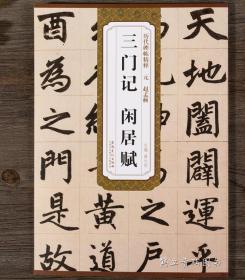 天地闔闢運乎
之戶
黄道
酉為之門是故
历代碑帖精粹 元 赵孟頫
三门记 闲居赋